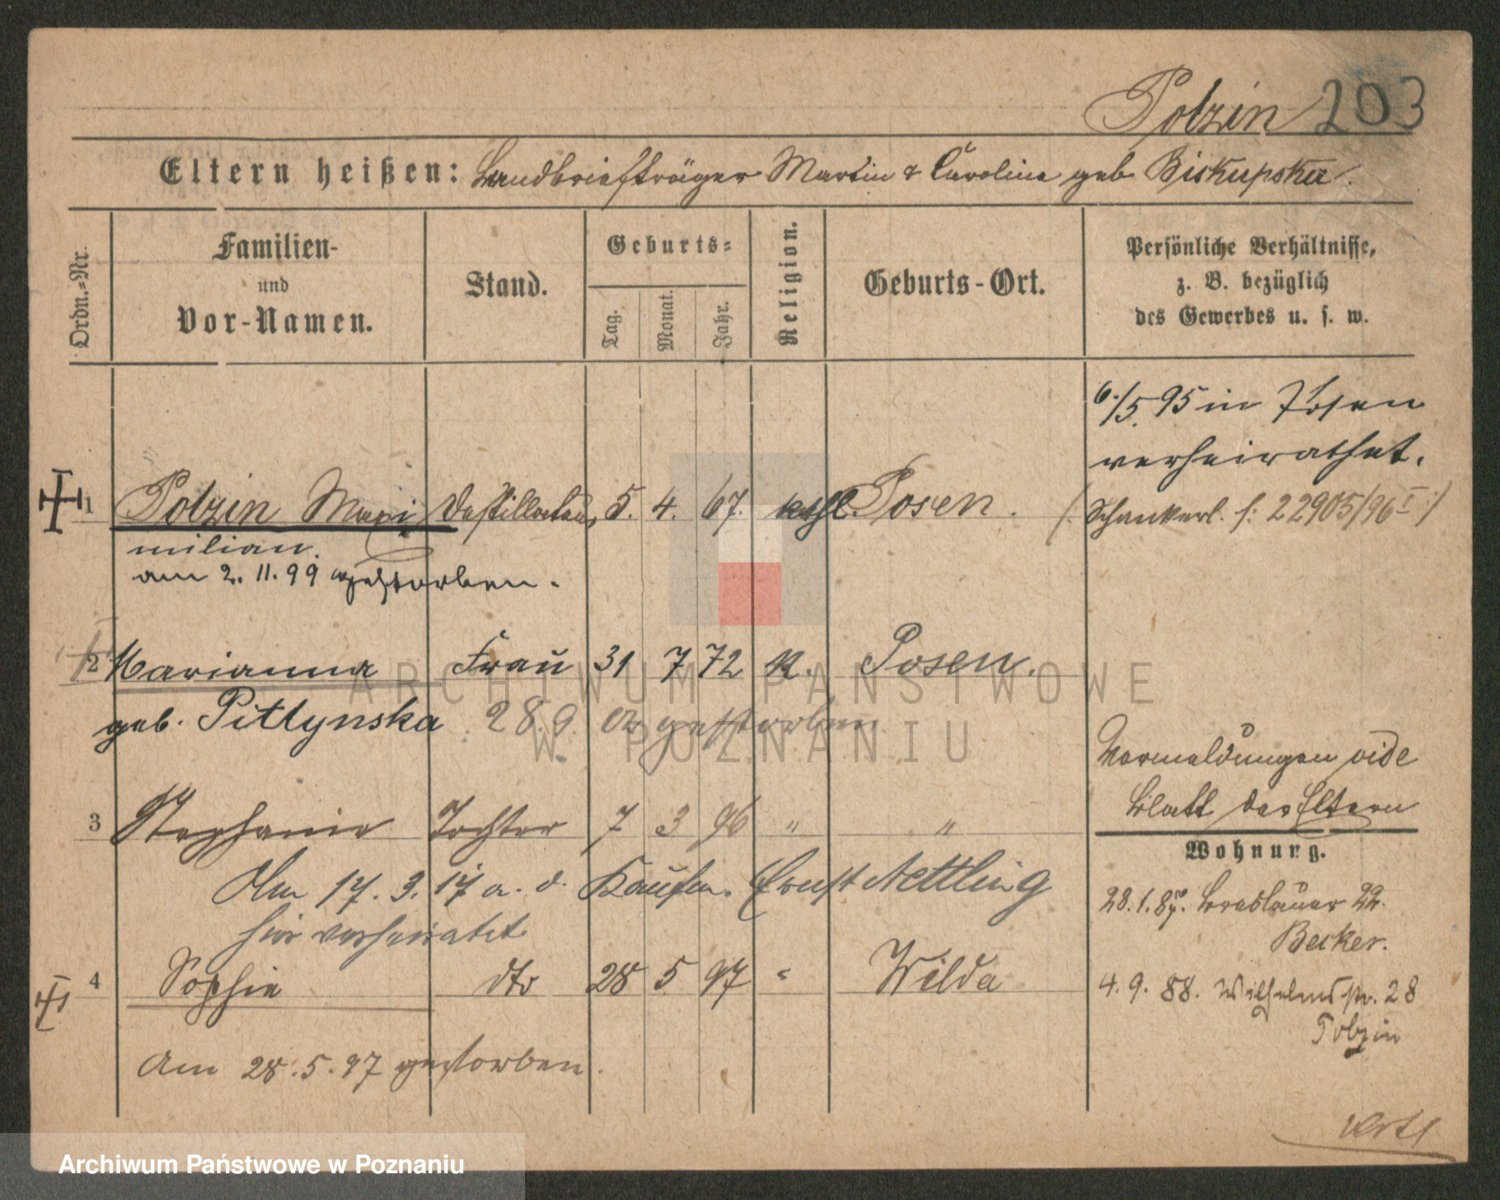 Polzin 203
Eltern heißen: Landbriefträger Martin & Caroline geb Biskupska.
Ordn.-Nr.
Familien-
und
Vor-Namen.
Stand.
Geburts-
Tag.
Monat.
Jahr.
Religion.
Geburts-Ort.
Persönliche Verhältnisse,
z. B. bezüglich
des Gewerbes u. s. w.
6./5. 95 in Posen
verheirathet.
1 Polzin Maxi Destillateur 5. 4. 67. kthl. Posen. (Schankerl. f: 22905/96 I)
milian.
am 2. 11. 99 gestorben.
2 Marianna Frau 31 7 72 K. Posen.
geb. Pittynska 28. 9. 02 gestorben
Vormeldungen vide
Blatt der Eltern
3 Stephanie Tochter 7 3 96 " "
Wohnung.
Am 17. 3. 17 a. d. Kaufm. Ernst Nettling
hier verheiratet
28. 1. 87. Breslauer 22.
Becker.
4 Sophie dto 28 5 97 " Wilda
4. 9. 88. Wilhelmstr. 28
Polzin
Am 28. 5. 97 gestorben.
ARCHIWUM PAŃSTWOWE
W POZNANIU
Archiwum Państwowe w Poznaniu